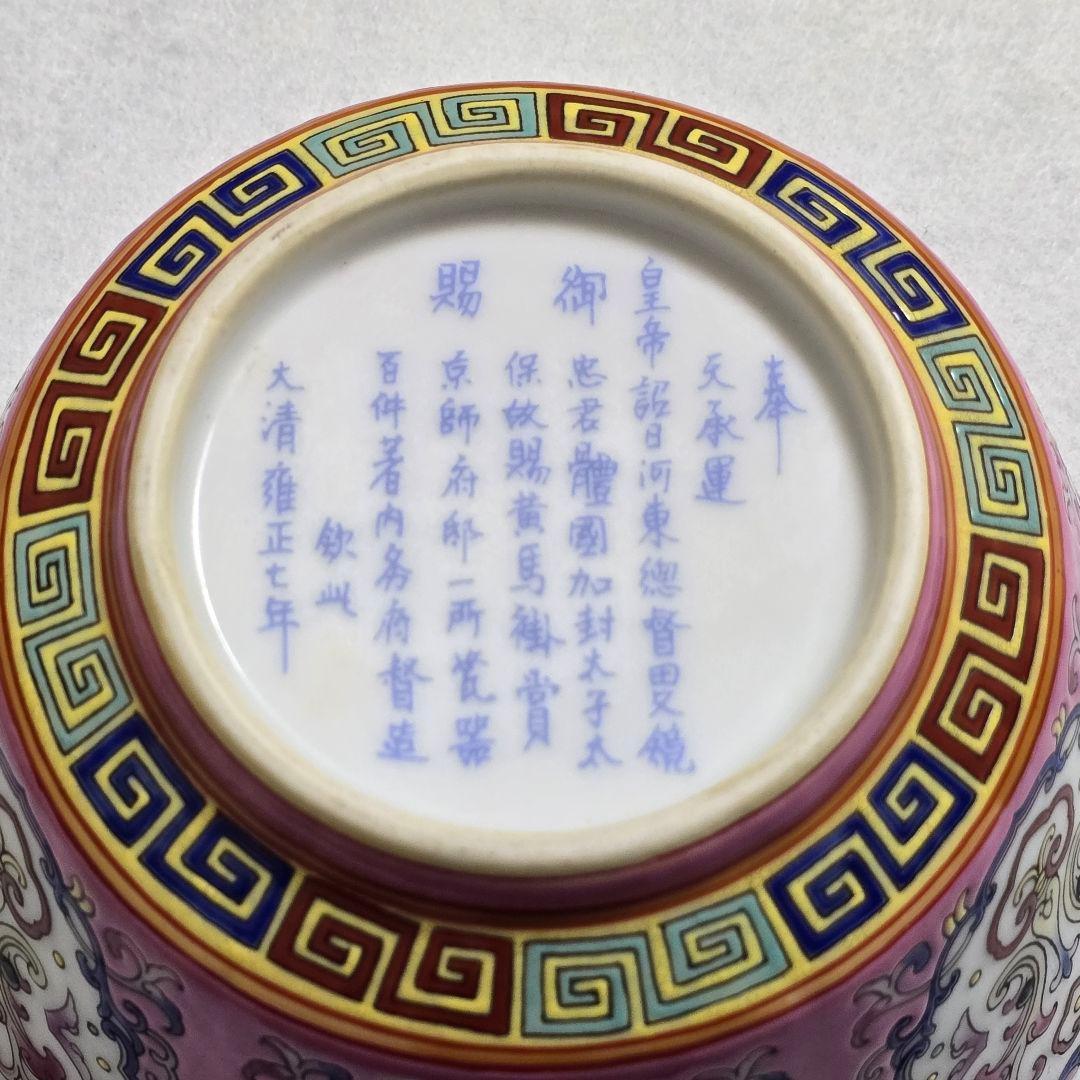 奉
天承運
皇帝詔曰河東總督田文鏡
忠君體國加封太子太
保故賜黃馬褂賞
京師府邸一所瓷器
百件著內务府督造
欽此
大清雍正七年
御賜